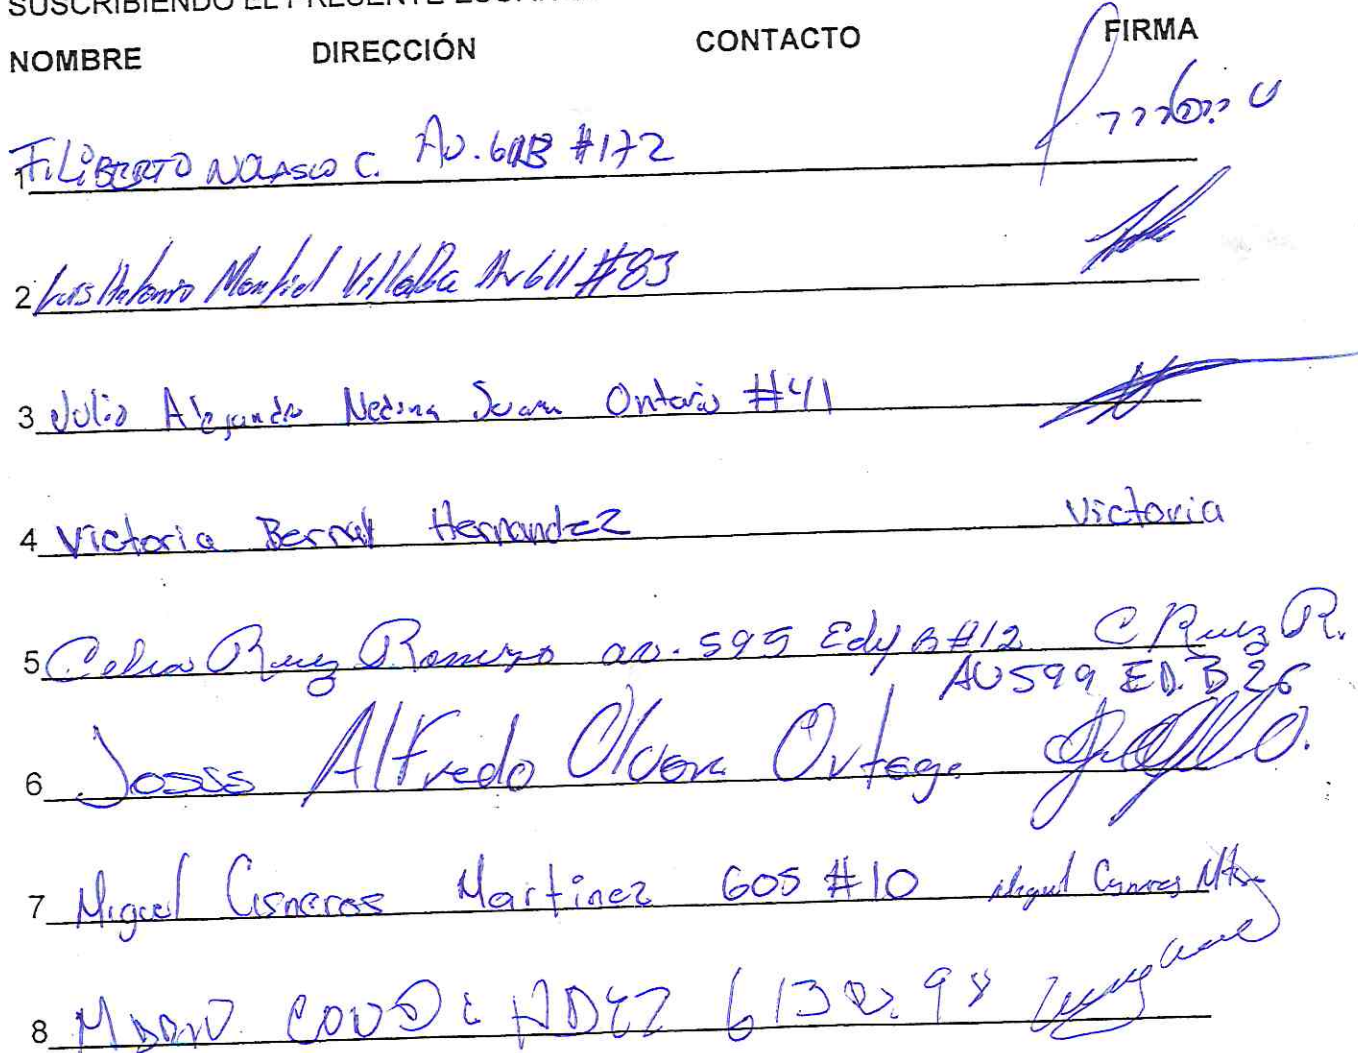 SUSCRIBIENDO EL PRESENTE
NOMBRE DIRECCIÓN CONTACTO FIRMA
1 FILIBERTO NOLASCO C. Av. #172
2 Luis Antonio Montiel Villalba Av 611 #83
3 Julio Alejandro Medina Ontario #41
4 Victoria Bernal Hernandez Victoria
5 Celia Ruiz Romero av. 595 Edif B #12 C Ruiz R.
AV 599 ED. B 26
6 Alfredo Olvera Ortega
7 Miguel Cisneros Martinez 605 #10 Miguel Cisneros Mtnez
8 CONDE HDEZ 98